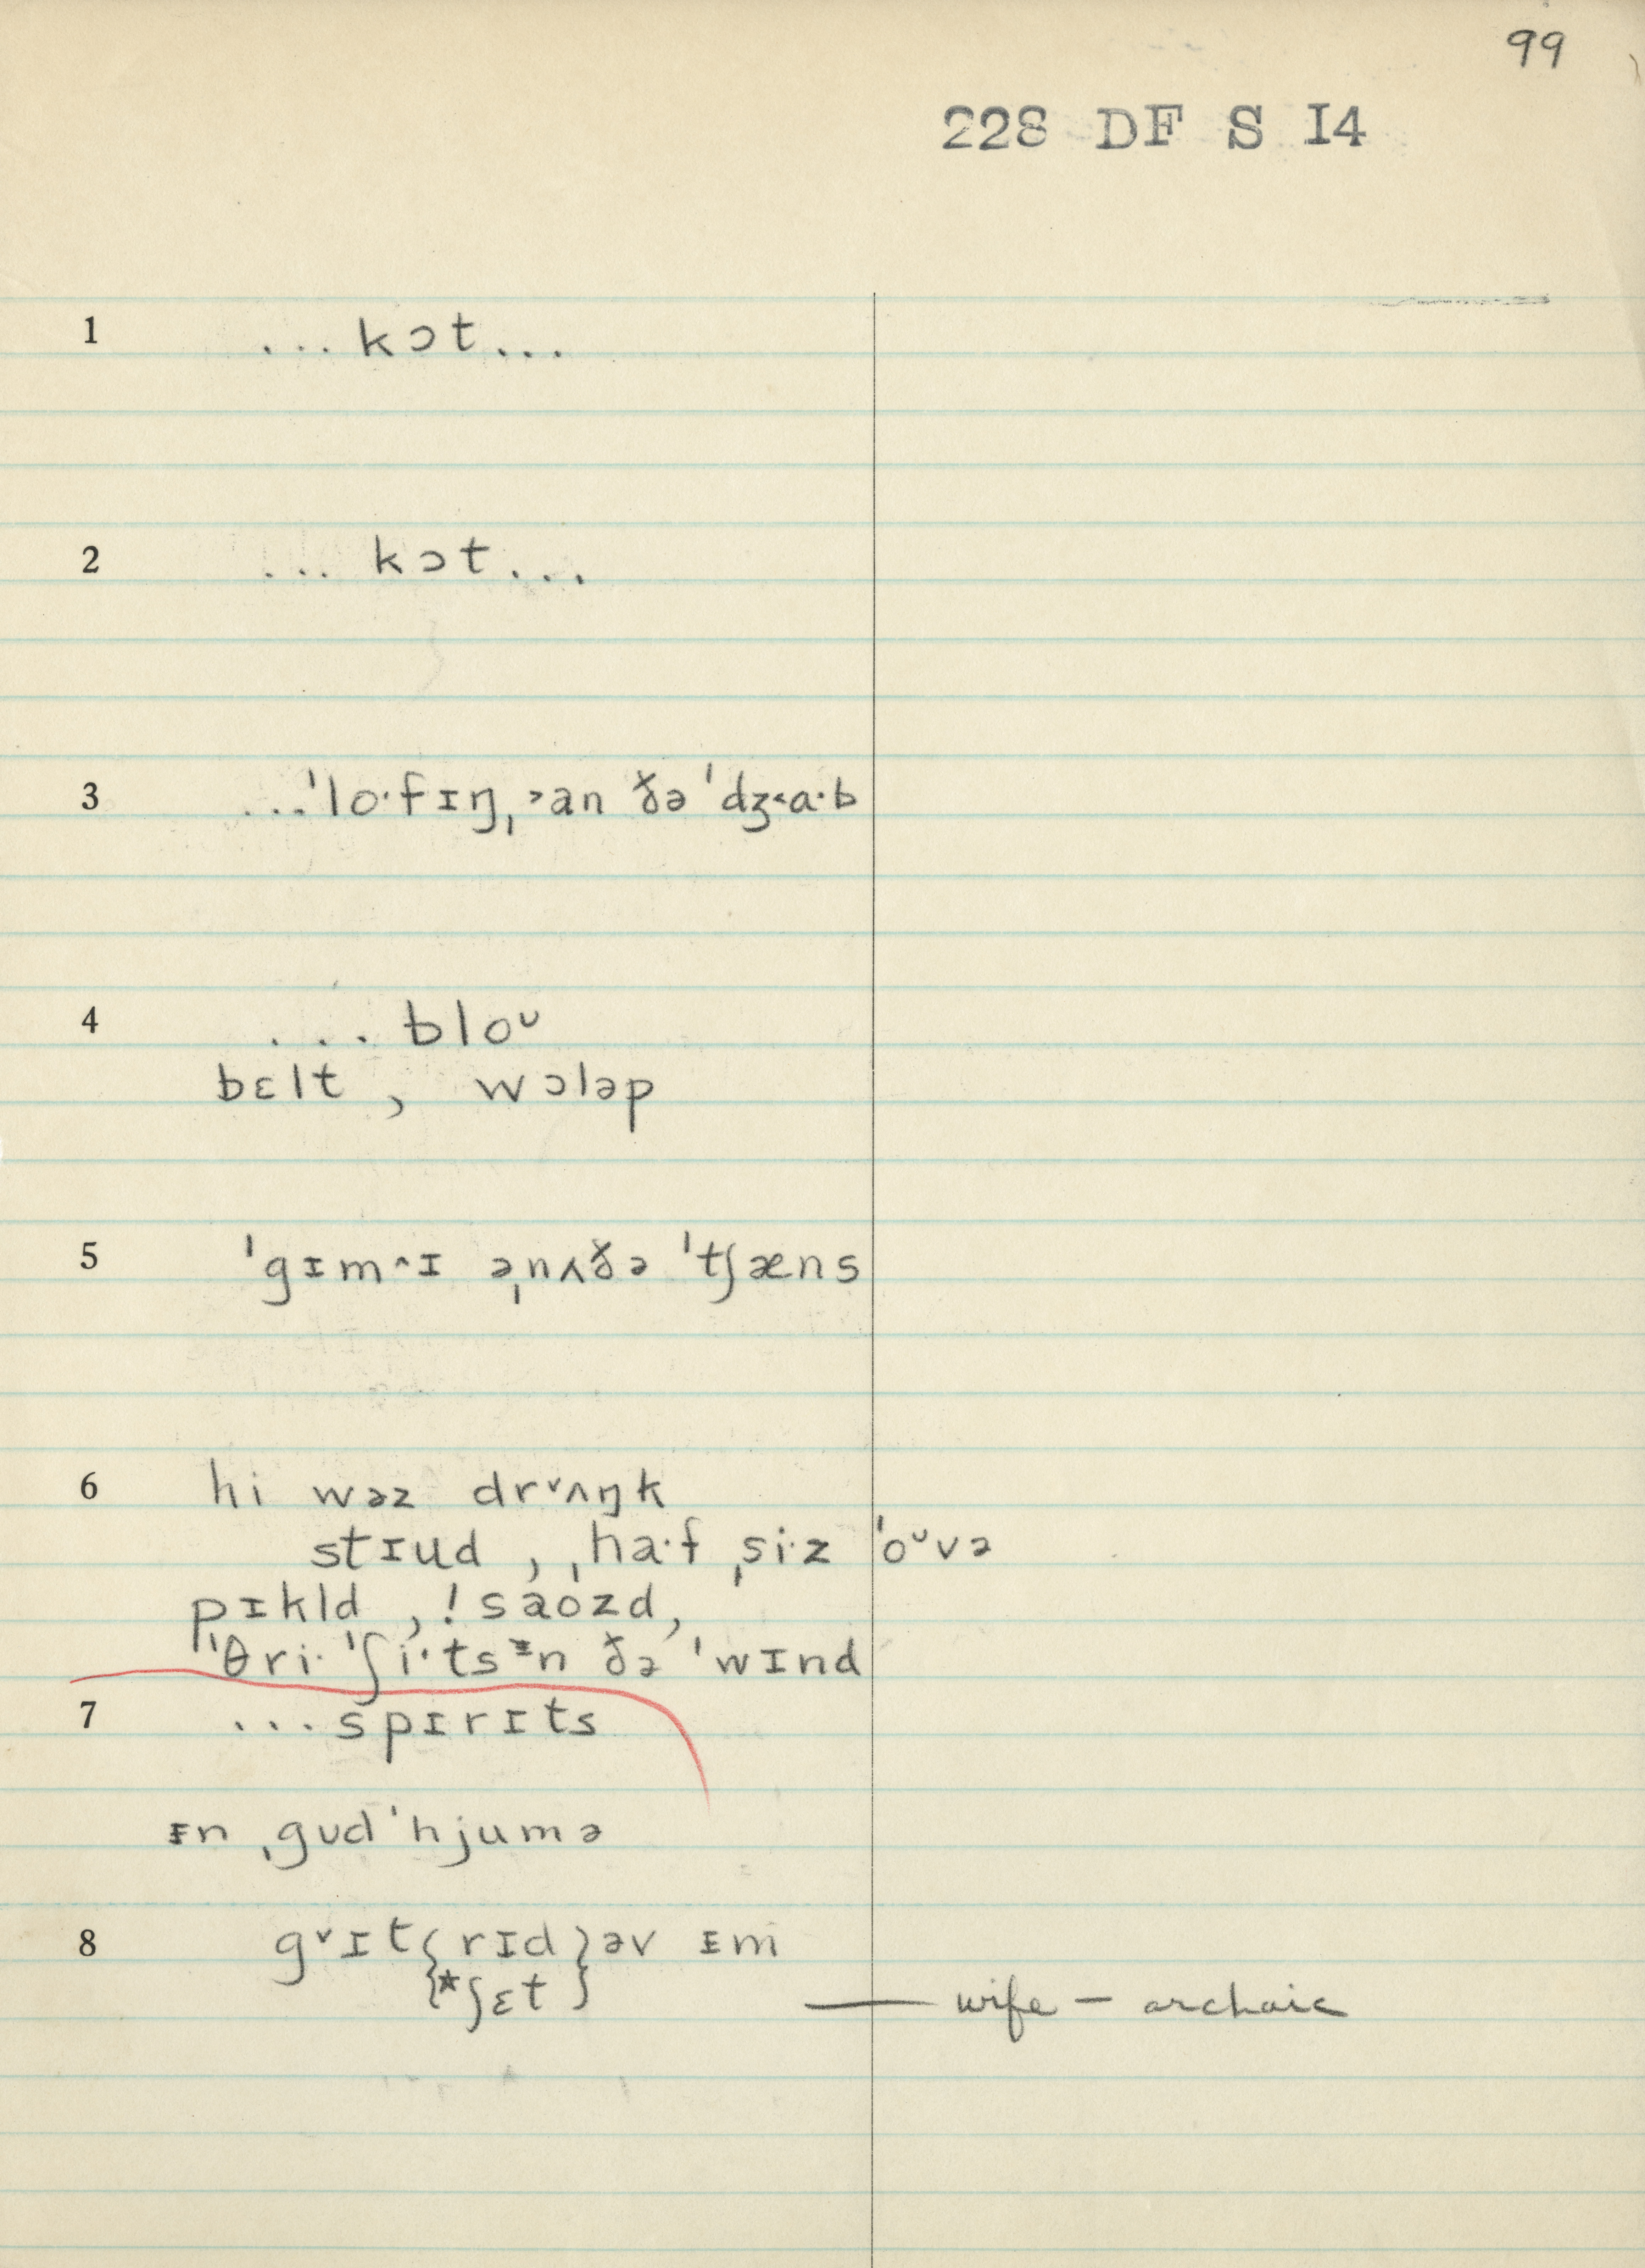 99
228 DF S I4
1 ...kɔt...
2 ... kɔt...
3 ...ˈlo·fɪŋˌ˃an ðə ˈdʒ˂a·b
4 ... bloᴜ
bɛlt , wɔləp
5 ˈgɪm^ɪ əˌnʌðə ˈtʃæns
6 hi wəz drᵛʌŋk
stɪud , ˌha·f ˌsi·z ˈoᴜvə
pɪkld , !saʊzd,
ˈθri· ˈʃi·tsᵻn ðə ˈwɪnd
7 ...spɪrɪts
ᵻn ˌgʊd ˈhjumə
8 gᵛɪt { rɪd } əv ᵻm
{ *ʃɛt } — wife – archaic